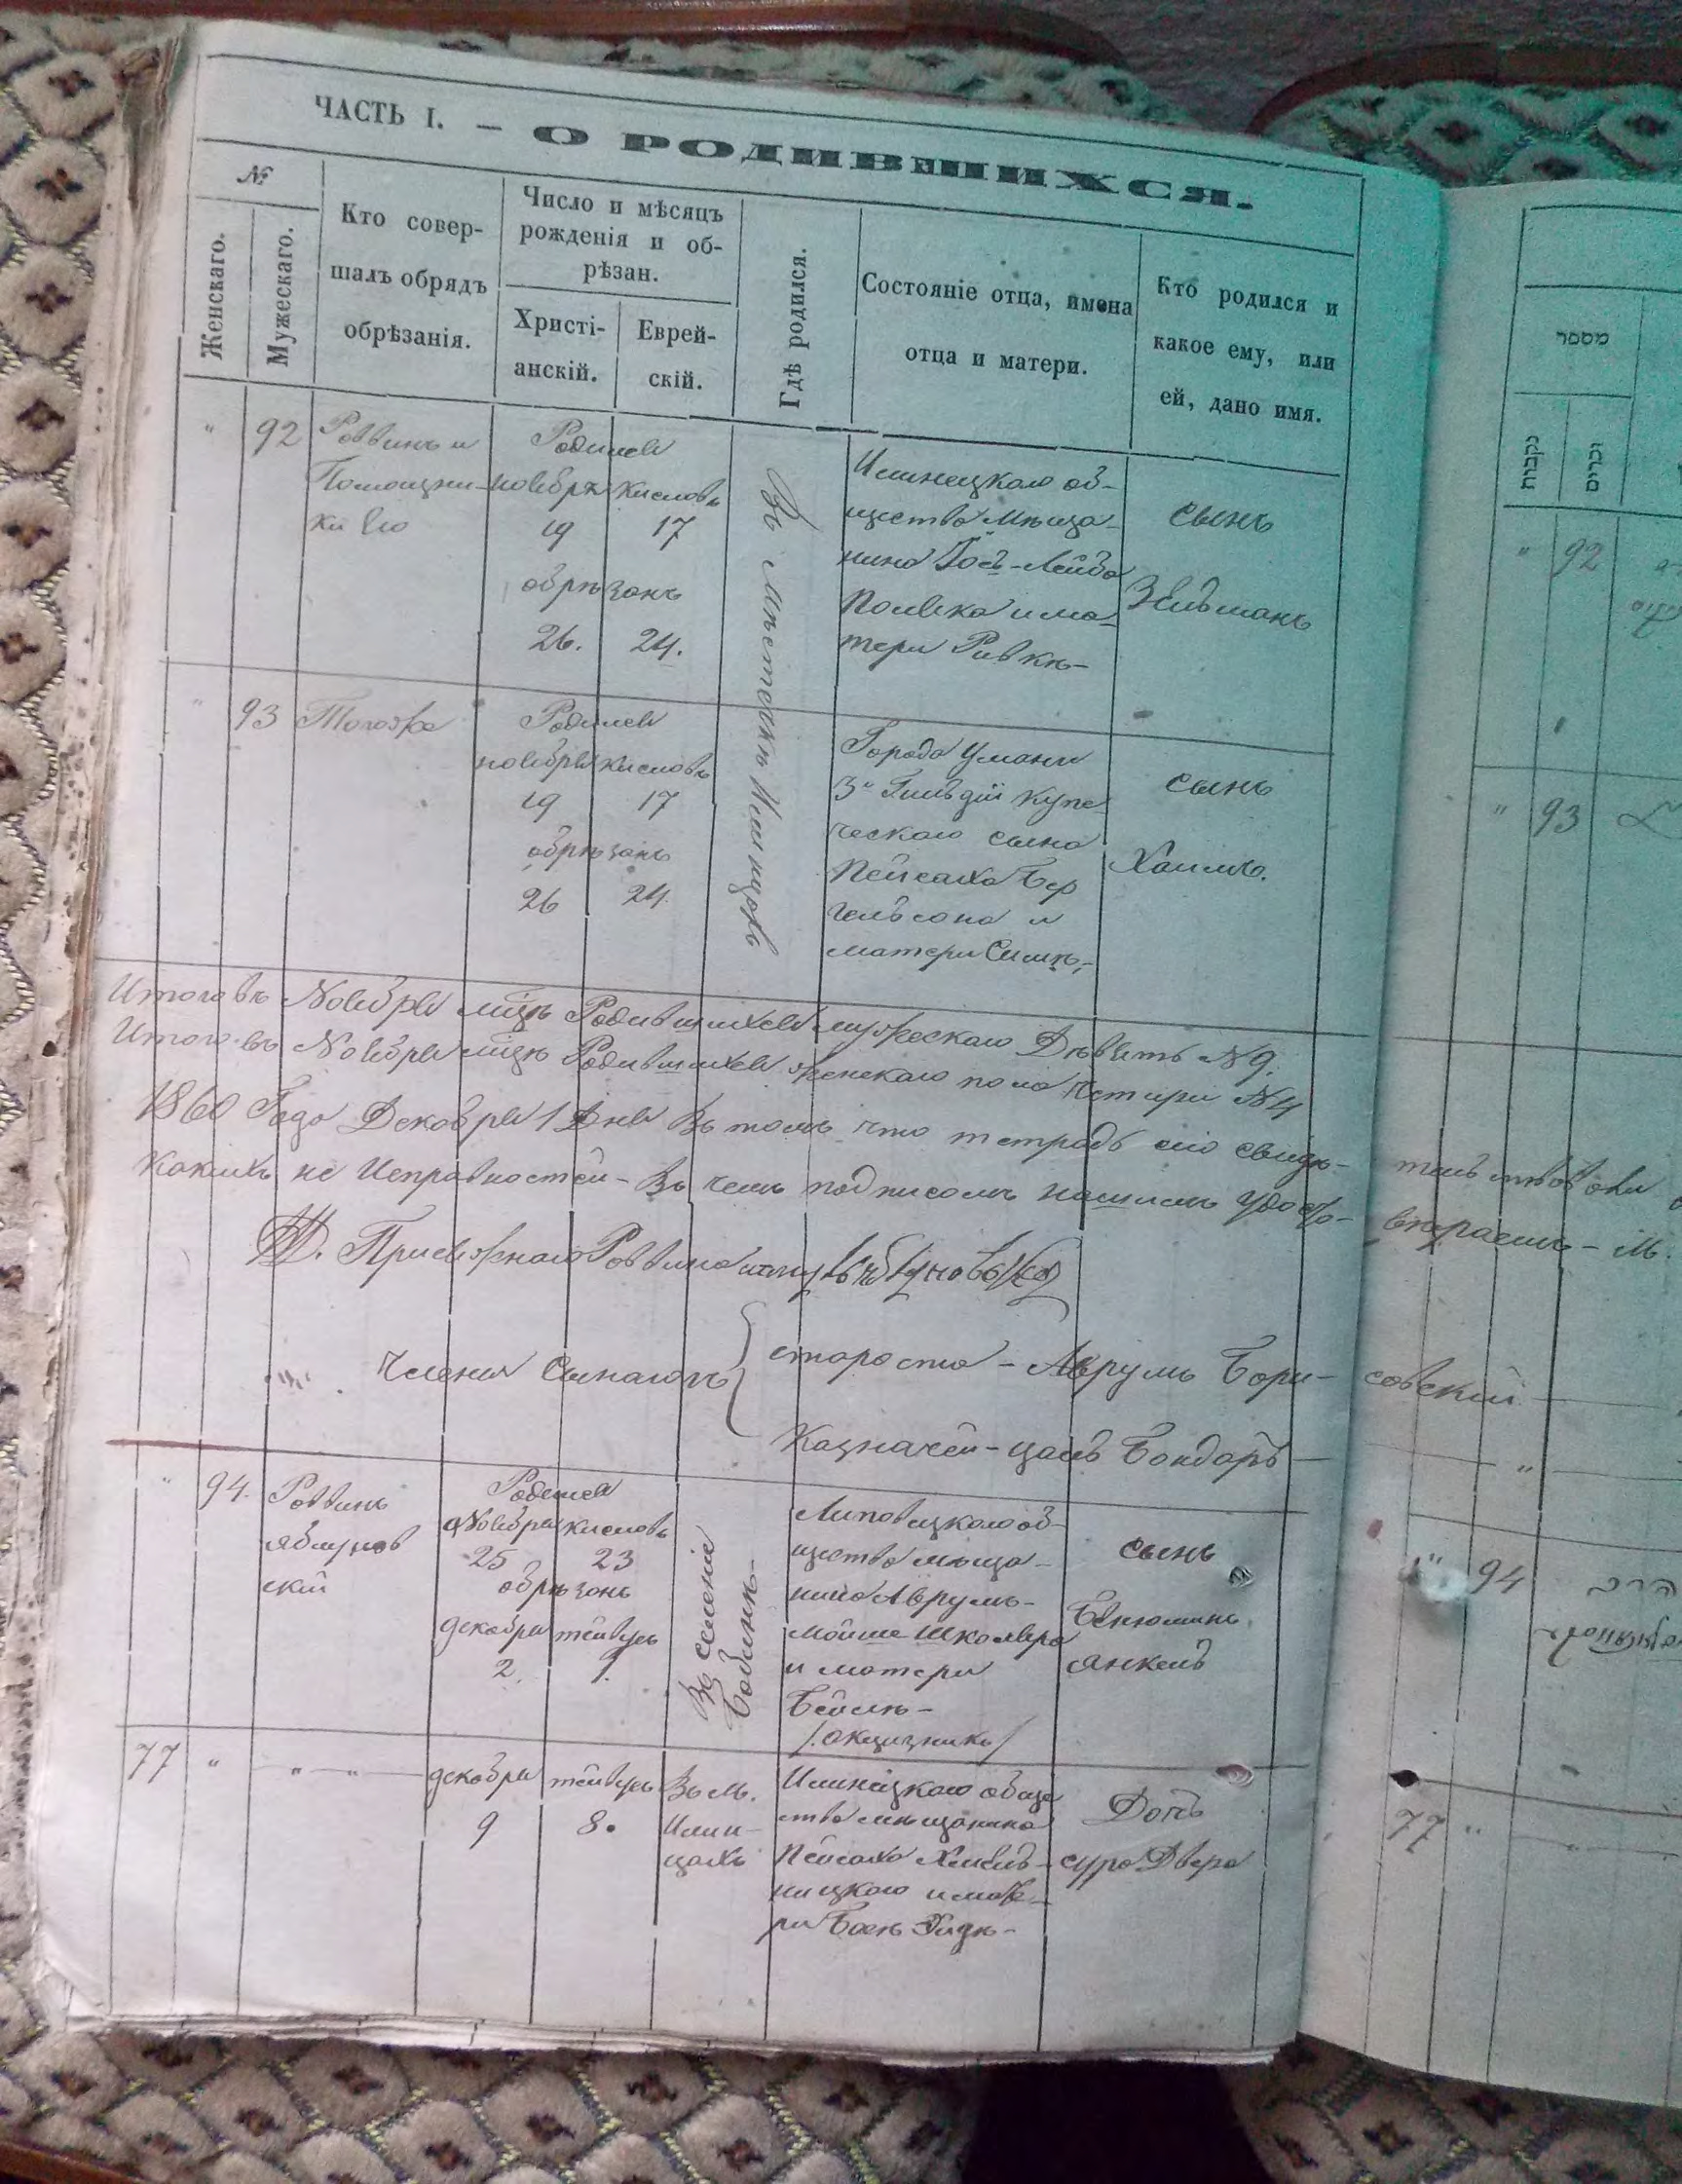 ЧАСТЬ I. — О РОДИВШИХСЯ.
№
Женскаго.
Мужескаго.
Кто совер-
шалъ обрядъ
обрѣзанія.
Число и мѣсяцъ
рожденія и об-
рѣзан.
Христі-
анскій.
Еврей-
скій.
Гдѣ родился.
Состояніе отца, имена
отца и матери.
Кто родился и
какое ему, или
ей, дано имя.
" 92
Раввинъ и
Помощни-
ки Его
Родился
ноября Кисловъ
19 17
обрѣзанъ
26. 24.
Въ мѣстечкѣ Илинцахъ
Илинецкого об-
щества мѣща-
нина Іосъ-Лейба
Полека и ма-
тери Ривкѣ-
сынъ
Зельманъ
" 93
Тогоже
Родился
ноября Кисловъ
19 17
обрѣзанъ
26 24.
Города Умани
3й Гильдіи купе
ческаго сына
Пейсаха Бер
гельсона и
матери Симкѣ,-
сынъ
Хаимъ.
Итого въ Ноября мцѣ Родившихся мужескаго Дѣвять N 9.
Итого въ Ноября мцѣ Родившихся женскаго пола четири N 4
1860 Года Декабря 1 Дня Въ томъ что тетрадь сія свидѣ-
тельствована
Какихъ не Исправностей - Въ чемъ подписомъ нашимъ удосто-
вѣряемъ - М.
Присяжнаго Раввина
Члены Сынагогъ
староста - Аврумъ Бори-
совский
Казначей - Бондарь
" 94.
Раввинъ
яблунов
скій
Родился
Ноября Кисловъ
25 23
обрѣзанъ
декабря тейвусъ
2. 1.
Въ селеніе
Бабинъ-
Липовецкого об-
щества мѣща-
нина Аврумъ-
Мойше Школьера
и матери
Бейлѣ-
/акцизникъ/
сынъ
Бенюминъ
янкель
77 " " "
декабря тейвусъ
9 8.
Въ м.
Илин-
цахъ
Илинецкого обще
ства мѣщанина
Пейсаха Хмель-
ницкого и мате-
ри Басѣ
Дочь
сура Двера
מספר
נקבות
זכרים
" 92
" 93
" 94
הרב
77 "